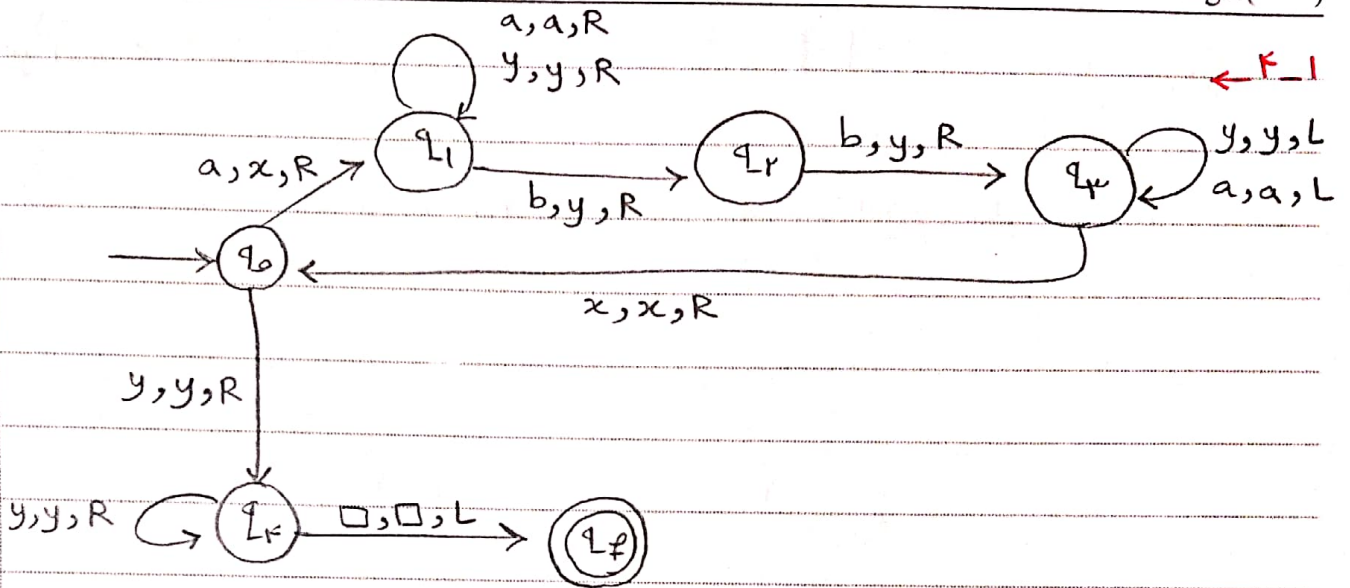 a, a, R
y, y, R
۴_۱
q۱
a, x, R
b, y, R
q۲
b, y, R
q۳
y, y, L
a, a, L
q۰
x, x, R
y, y, R
y, y, R
q۴
□, □, L
qf